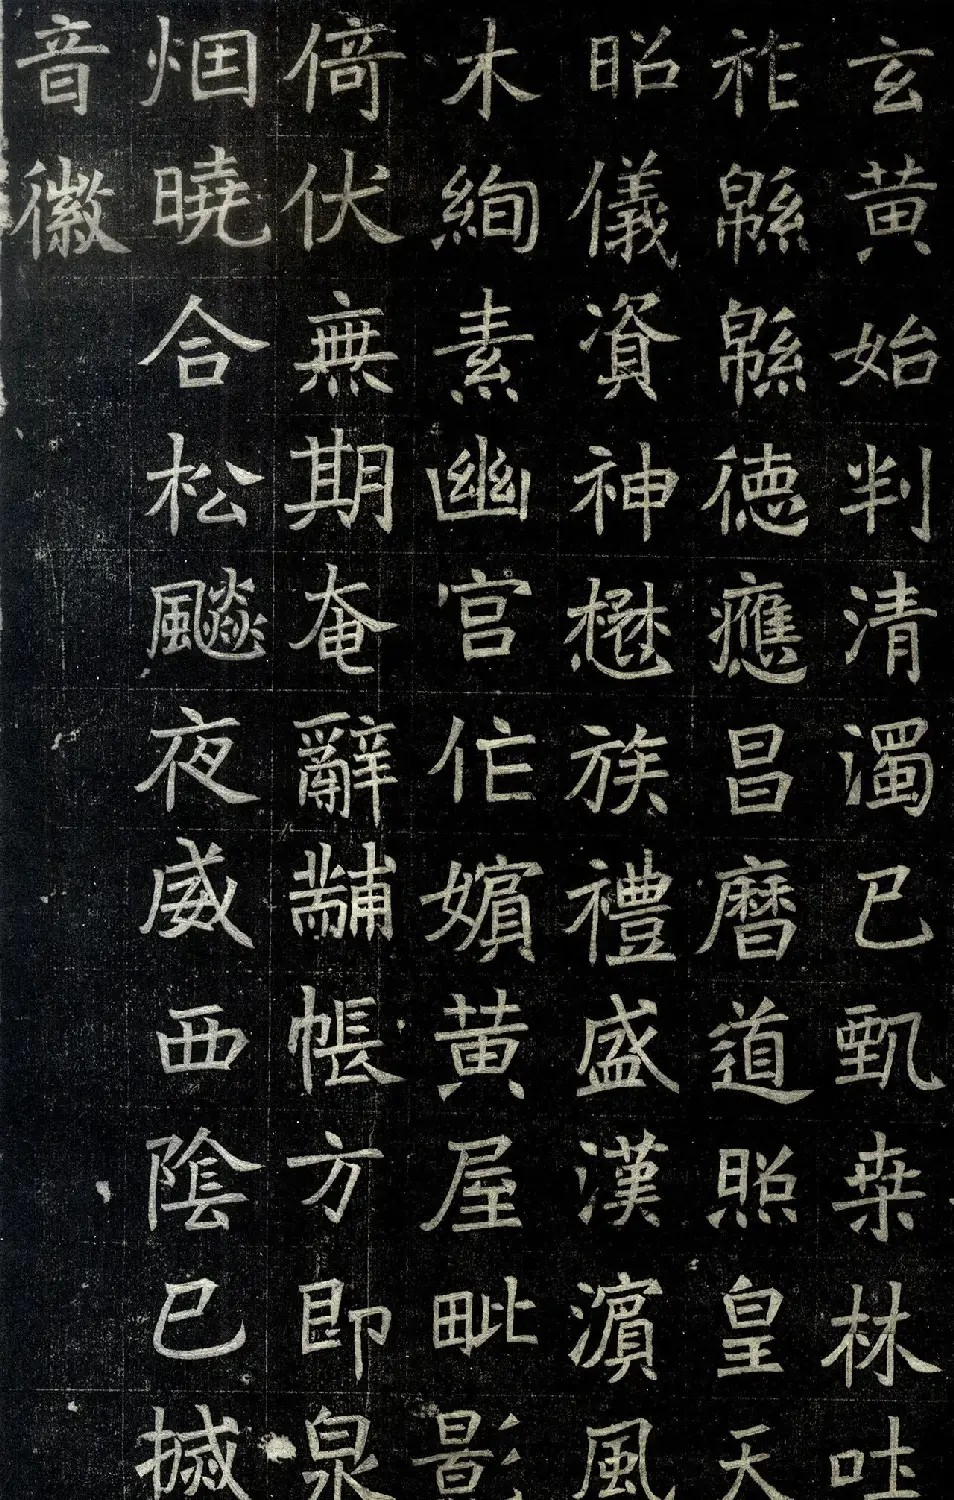 玄黄始判清濁已甄桒林吐
祚緜緜德應昌曆道照皇天
昭儀資神懋族禮盛漢濵風
木絢素幽宫作嬪黄屋毗影
倚伏無期奄辭黼帳方即泉
烟曉合松飈夜威西陰已
音徽